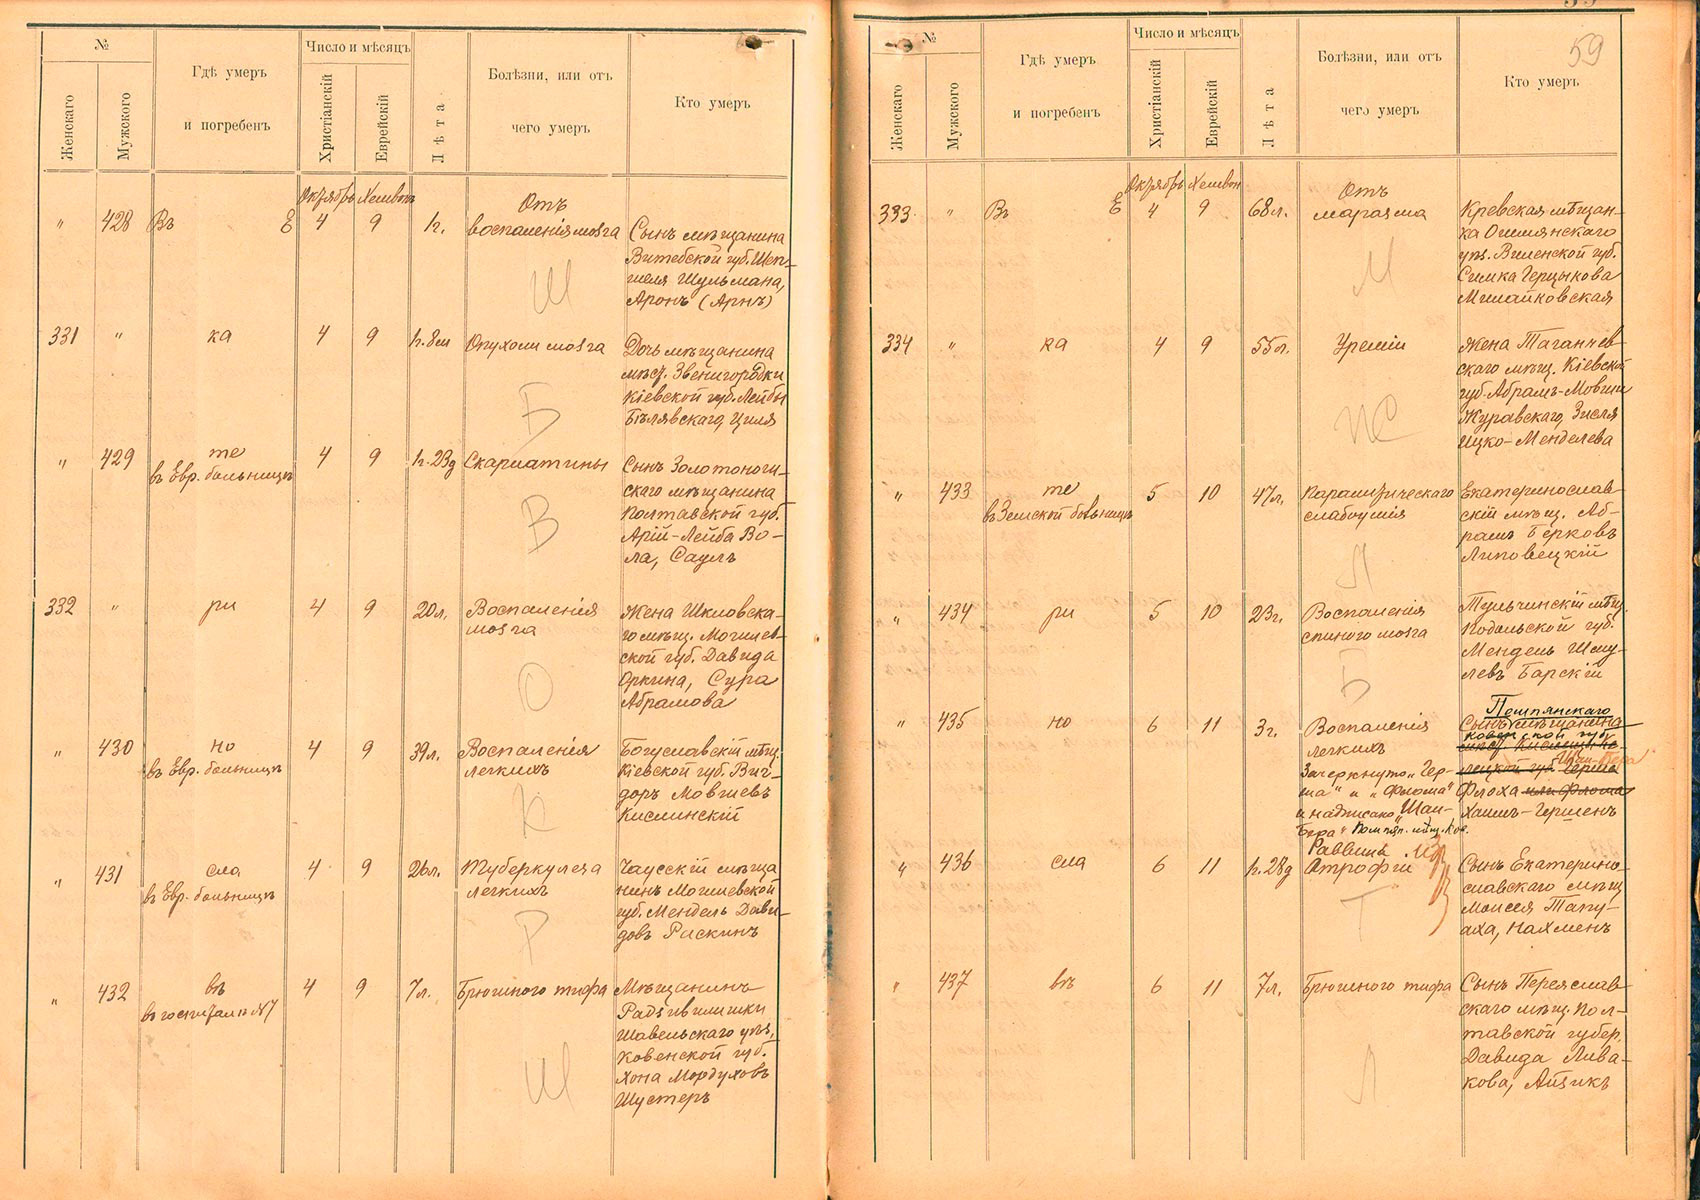 №
Женскаго
Мужского
Гдѣ умеръ
и погребенъ
Число и мѣсяцъ
Христіанскій
Еврейскій
Лѣта
Болѣзни, или отъ
чего умеръ
Кто умеръ
Октябрь Хешвонъ
" 428 Въ Е 4 9 1г.
Отъ
воспаленія мозга
Сынъ мѣщанина
Витебской губ. Шеп-
шеля Шульмана,
Аронъ (Арнъ)
Ш
331 " ка 4 9 1г. 8м Опухоли мозга
Дочь мѣщанина
мѣст. Звенигородки
Кіевской губ. Лейбы
Бѣлявскаго, Циля
Б
" 429 те
въ Евр. больницѣ
4 9 1г. 23д Скарлатины
Сынъ Золотоног-
скаго мѣщанина
Полтавской губ.
Арій-Лейба Во-
ла, Саулъ
В
332 " ри 4 9 20л. Воспаленія
мозга
Жена Шкловска-
го мѣщ. Могилев-
ской губ. Давида
Оркина, Сура
Абрамова
О
" 430 но
въ Евр. больницѣ
4 9 39л. Воспаленія
легкихъ
Богуславскій мѣщ.
Кіевской губ. Виг-
доръ Мовшевъ
Кислинскій
К
" 431 сла
въ Евр. больницѣ
4 9 26л. Туберкулеза
легкихъ
Чаусскій мѣща
нинъ Могилевской
губ. Мендель Дави-
довъ Раскинъ
Р
" 432 въ
въ госпиталѣ №7
4 9 7л. Брюшного тифа
Мѣщанинъ
Радзивилишки
Шавельскаго уѣз.
Ковенской губ.
Хона Мордуховъ
Шустеръ
Ш
59
№
Женскаго
Мужского
Гдѣ умеръ
и погребенъ
Число и мѣсяцъ
Христіанскій
Еврейскій
Лѣта
Болѣзни, или отъ
чего умеръ
Кто умеръ
Октябрь Хешвон
333 " Въ Е 4 9 68л.
Отъ
маразма
Кревская мѣщан-
ка Ошмянскаго
уѣз. Виленской губ.
Симка Герцыкова
Милайковская
М
334 " ка 4 9 55л. Уреміи
Жена Таганчев
скаго мѣщ. Кіевской
губ. Абрамъ-Мовши
Журавскаго, Зисля
Ицко-Менделева
Ж
" 433 те
въ Земской больницѣ
5 10 47л. Паралитическаго
слабоумія
Екатеринослав-
скій мѣщ. Аб-
рамъ Берковъ
Липовецкій
Л
" 434 ри 5 10 23г. Воспаленія
спиного мозга
Тульчинскій мѣщ.
Подольской губ.
Мендель Шму-
левъ Барскій
Б
" 435 но 6 11 3г. Воспаленія
легкихъ
Зачеркнуто "Гер-
ша" и "Флома"
и надписано "Шаи-
Бера" Помпян. мѣщ. Ков.
Раввинъ
Помпянскаго
Сынъ мѣщанина
Ковенской губ.
Шаи-Бера
Флоха или Флома
Хаимъ-Гершенъ
" 436 сла 6 11 1г. 28д Атрофіи
Сынъ Екатерино-
славскаго мѣщ
Моисея Тапу-
аха, Нахменъ
Т
" 437 въ 6 11 7л. Брюшного тифа
Сынъ Переяслав-
скаго мѣщ. Пол-
тавской губер.
Давида Лива-
кова, Айзикъ
Л